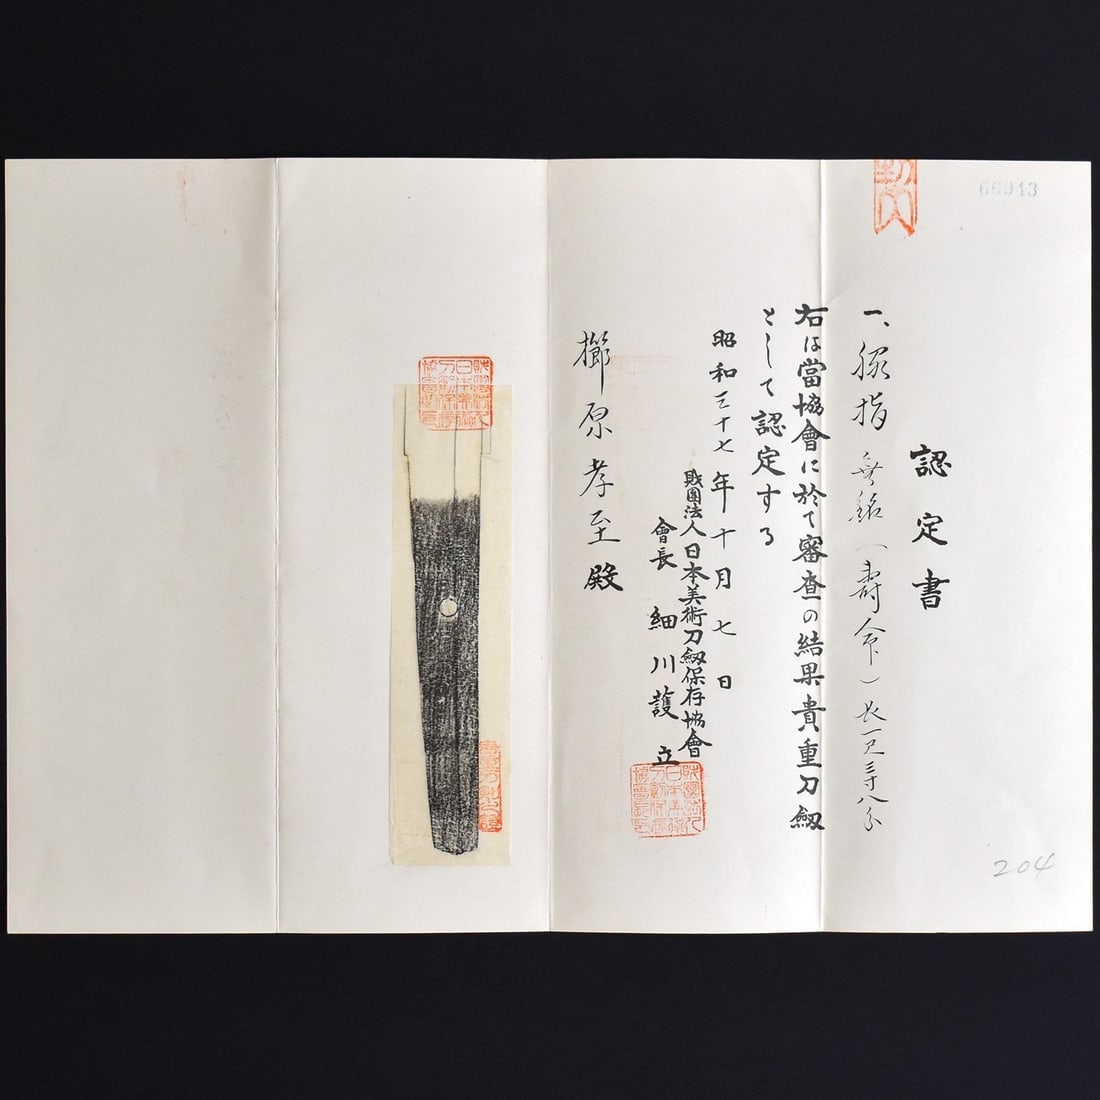 66943
認定書
一、脇指 無銘(寿命)長一尺三寸八分
右は當協會に於て審査の結果貴重刀劔
として認定する
昭和三十七年十月七日
財團法人日本美術刀劔保存協會
會長 細川護立
櫛原孝至殿
204